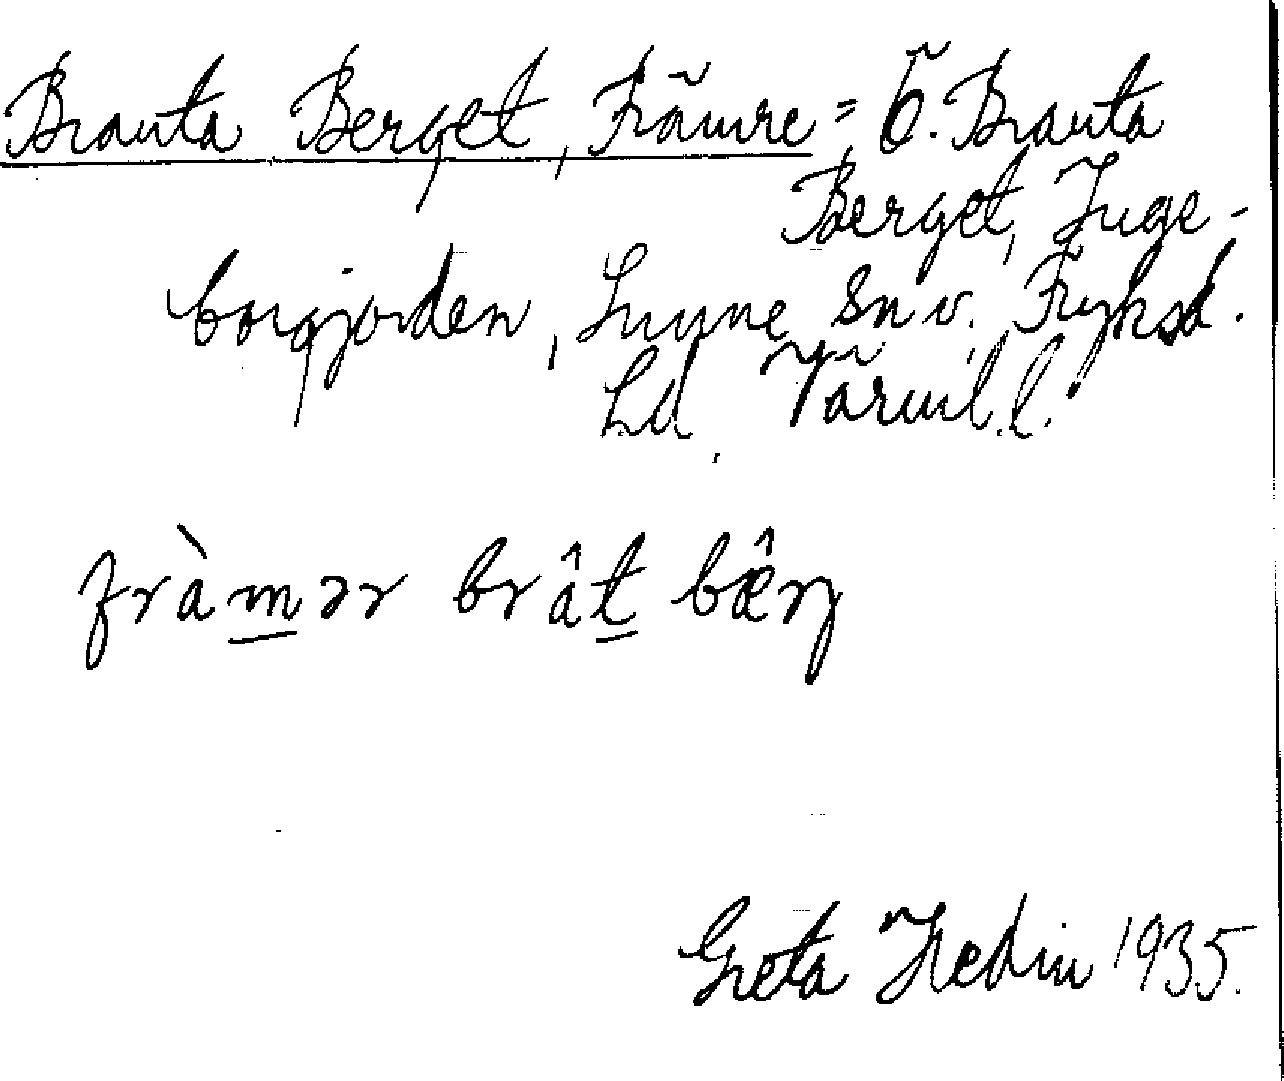 Branta Berget, Främre = Ö. Branta
Berget, Inge-
borgjorden, Sunne Sn v. Fryksd.
Ld Värml. l.
fràmər brât bærj
Greta Hedin 1935.